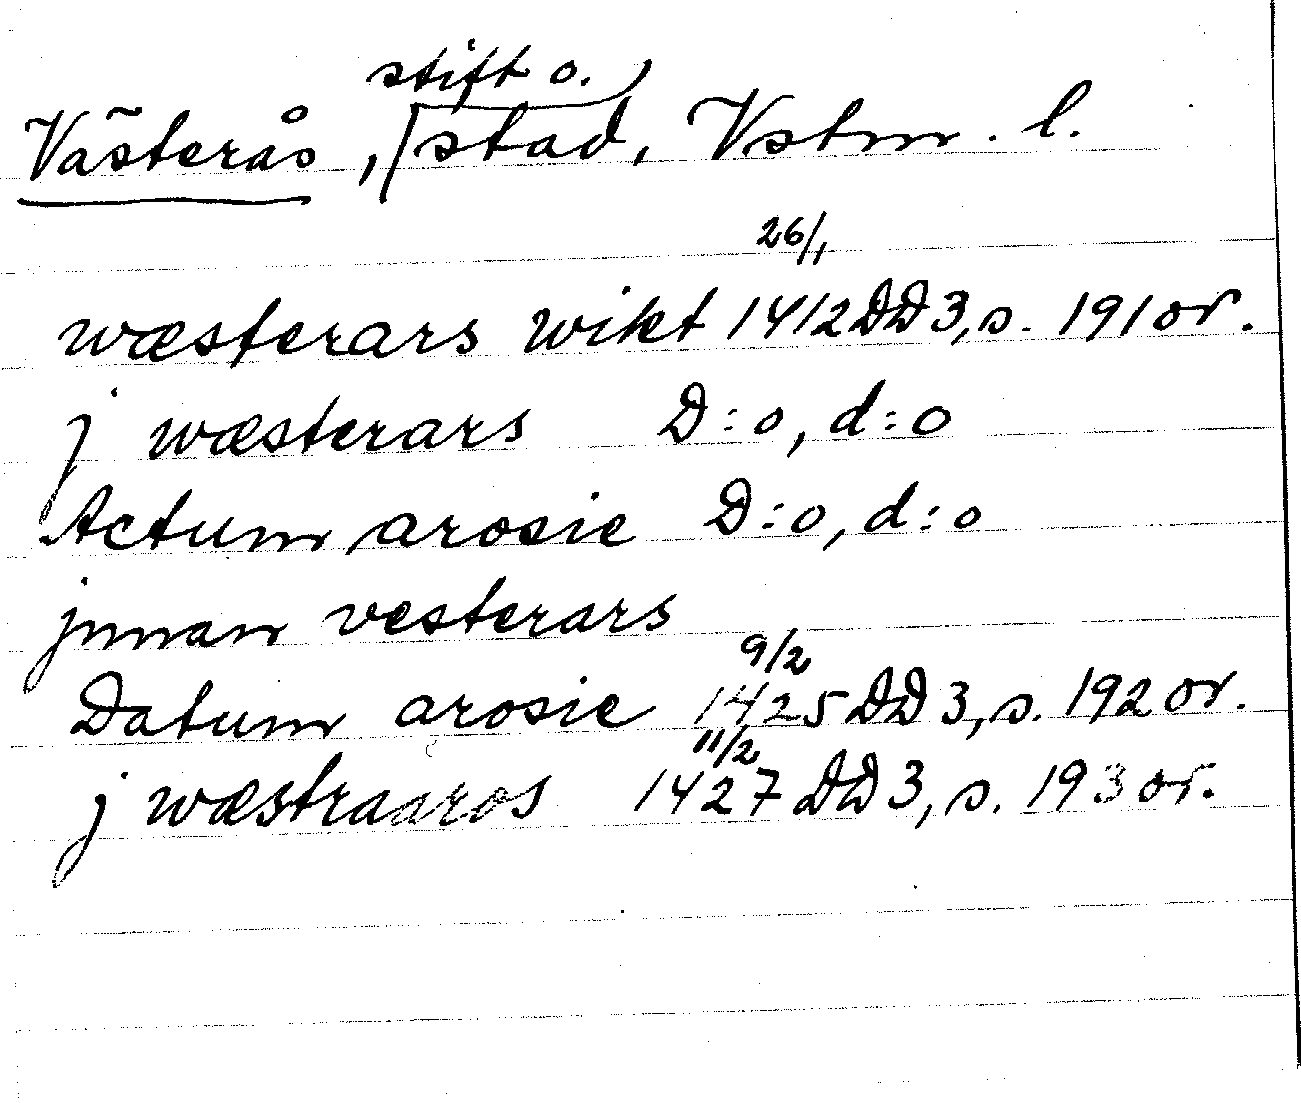 Västerås, stift o. stad, Vstm. l.
wæsterars wikt 26/1 1412 DD 3, s. 191 or.
j wæsterars D:o, d:o
Actum arosie D:o, d:o
jnnan vesterars
Datum arosie 9/2 1425 DD 3, s. 192 or.
j wæstraaros 11/2 1427 DD 3, s. 193 or.